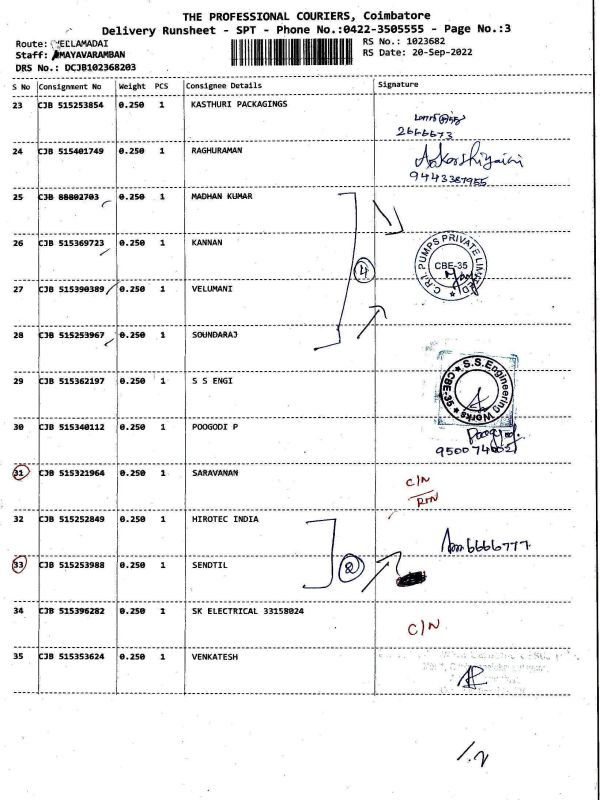 THE PROFESSIONAL COURIERS, Coimbatore
Delivery Runsheet - SPT - Phone No.:0422-3505555 - Page No.:3
Route: EELAMADAI
RS No.: 1023682
Staff: MAYAVARAMBAN
RS Date: 20-Sep-2022
DRS No.: DCJB102368203
S No Consignment No Weight PCS Consignee Details Signature
23 CJB 515253854 0.250 1 KASTHURI PACKAGINGS
2666673
24 CJB 515401749 0.250 1 RAGHURAMAN
9443387955
25 CJB 88802703 0.250 1 MADHAN KUMAR
26 CJB 515369723 0.250 1 KANNAN
C.R.I. PUMPS PRIVATE LIMITED
CBE-35
4
27 CJB 515390389 0.250 1 VELUMANI
28 CJB 515253967 0.250 1 SOUNDARAJ
29 CJB 515362197 0.250 1 S S ENGI
S.S.Engineering Works
CBE-35
30 CJB 515340112 0.250 1 POOGODI P
31 CJB 515321964 0.250 1 SARAVANAN
C/N
RTN
32 CJB 515252849 0.250 1 HIROTEC INDIA
6666777
33 CJB 515253988 0.250 1 SENDTIL
2
34 CJB 515396282 0.250 1 SK ELECTRICAL 33158024
C/N
35 CJB 515353624 0.250 1 VENKATESH